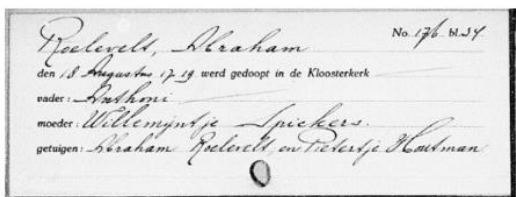 Roelevelt, Abraham No. 176 bl. 34
den 18 Augustus 17 19 werd gedoopt in de Kloosterkerk
vader: Anthoni
moeder: Willemijntje Spiekers.
getuigen: Abraham Roelevelt, en Pietertje Houtman